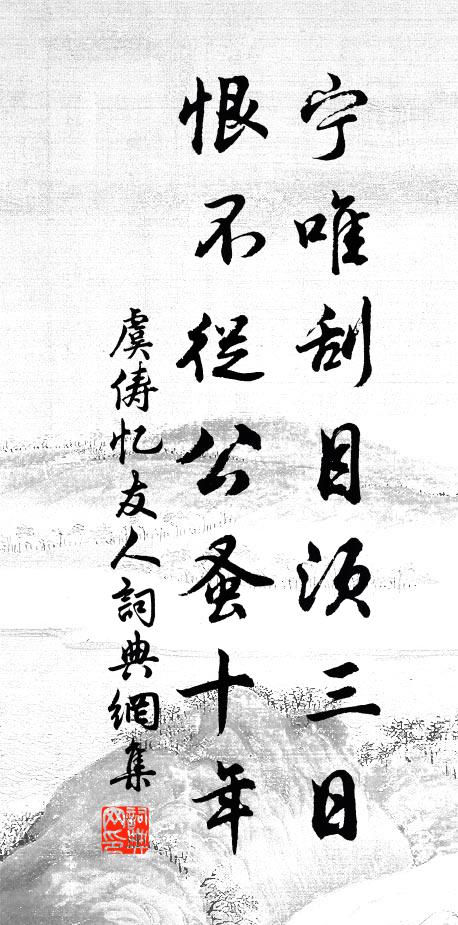 宁唯刮目须三日
恨不從公蚤十年
虞儔忆友人詞典網集